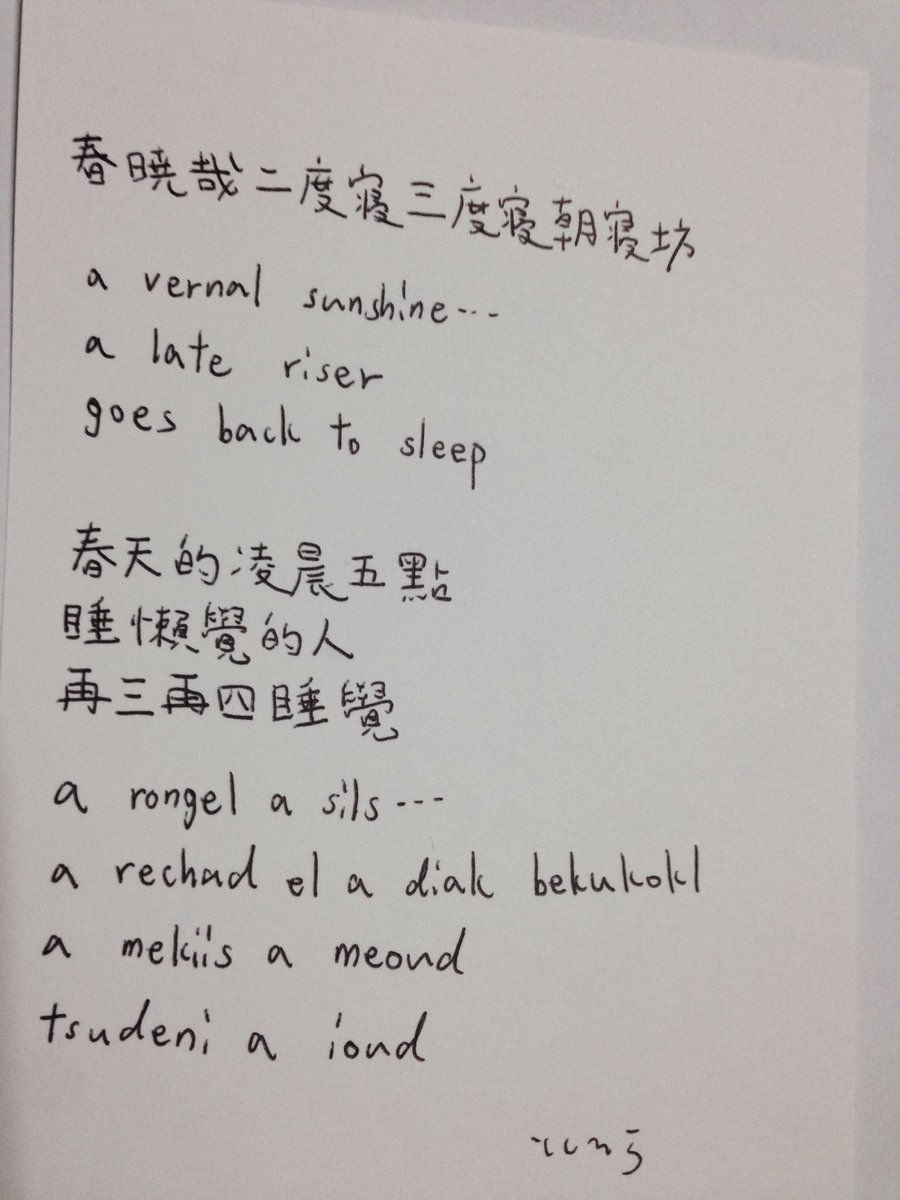 春曉哉二度寝三度寝朝寝坊
a vernal sunshine...
a late riser
goes back to sleep
春天的凌晨五點
睡懶覺的人
再三再四睡覺
a rongel a sils...
a rechad el a diak bekukokl
a mekiis a meond
tsudeni a iond